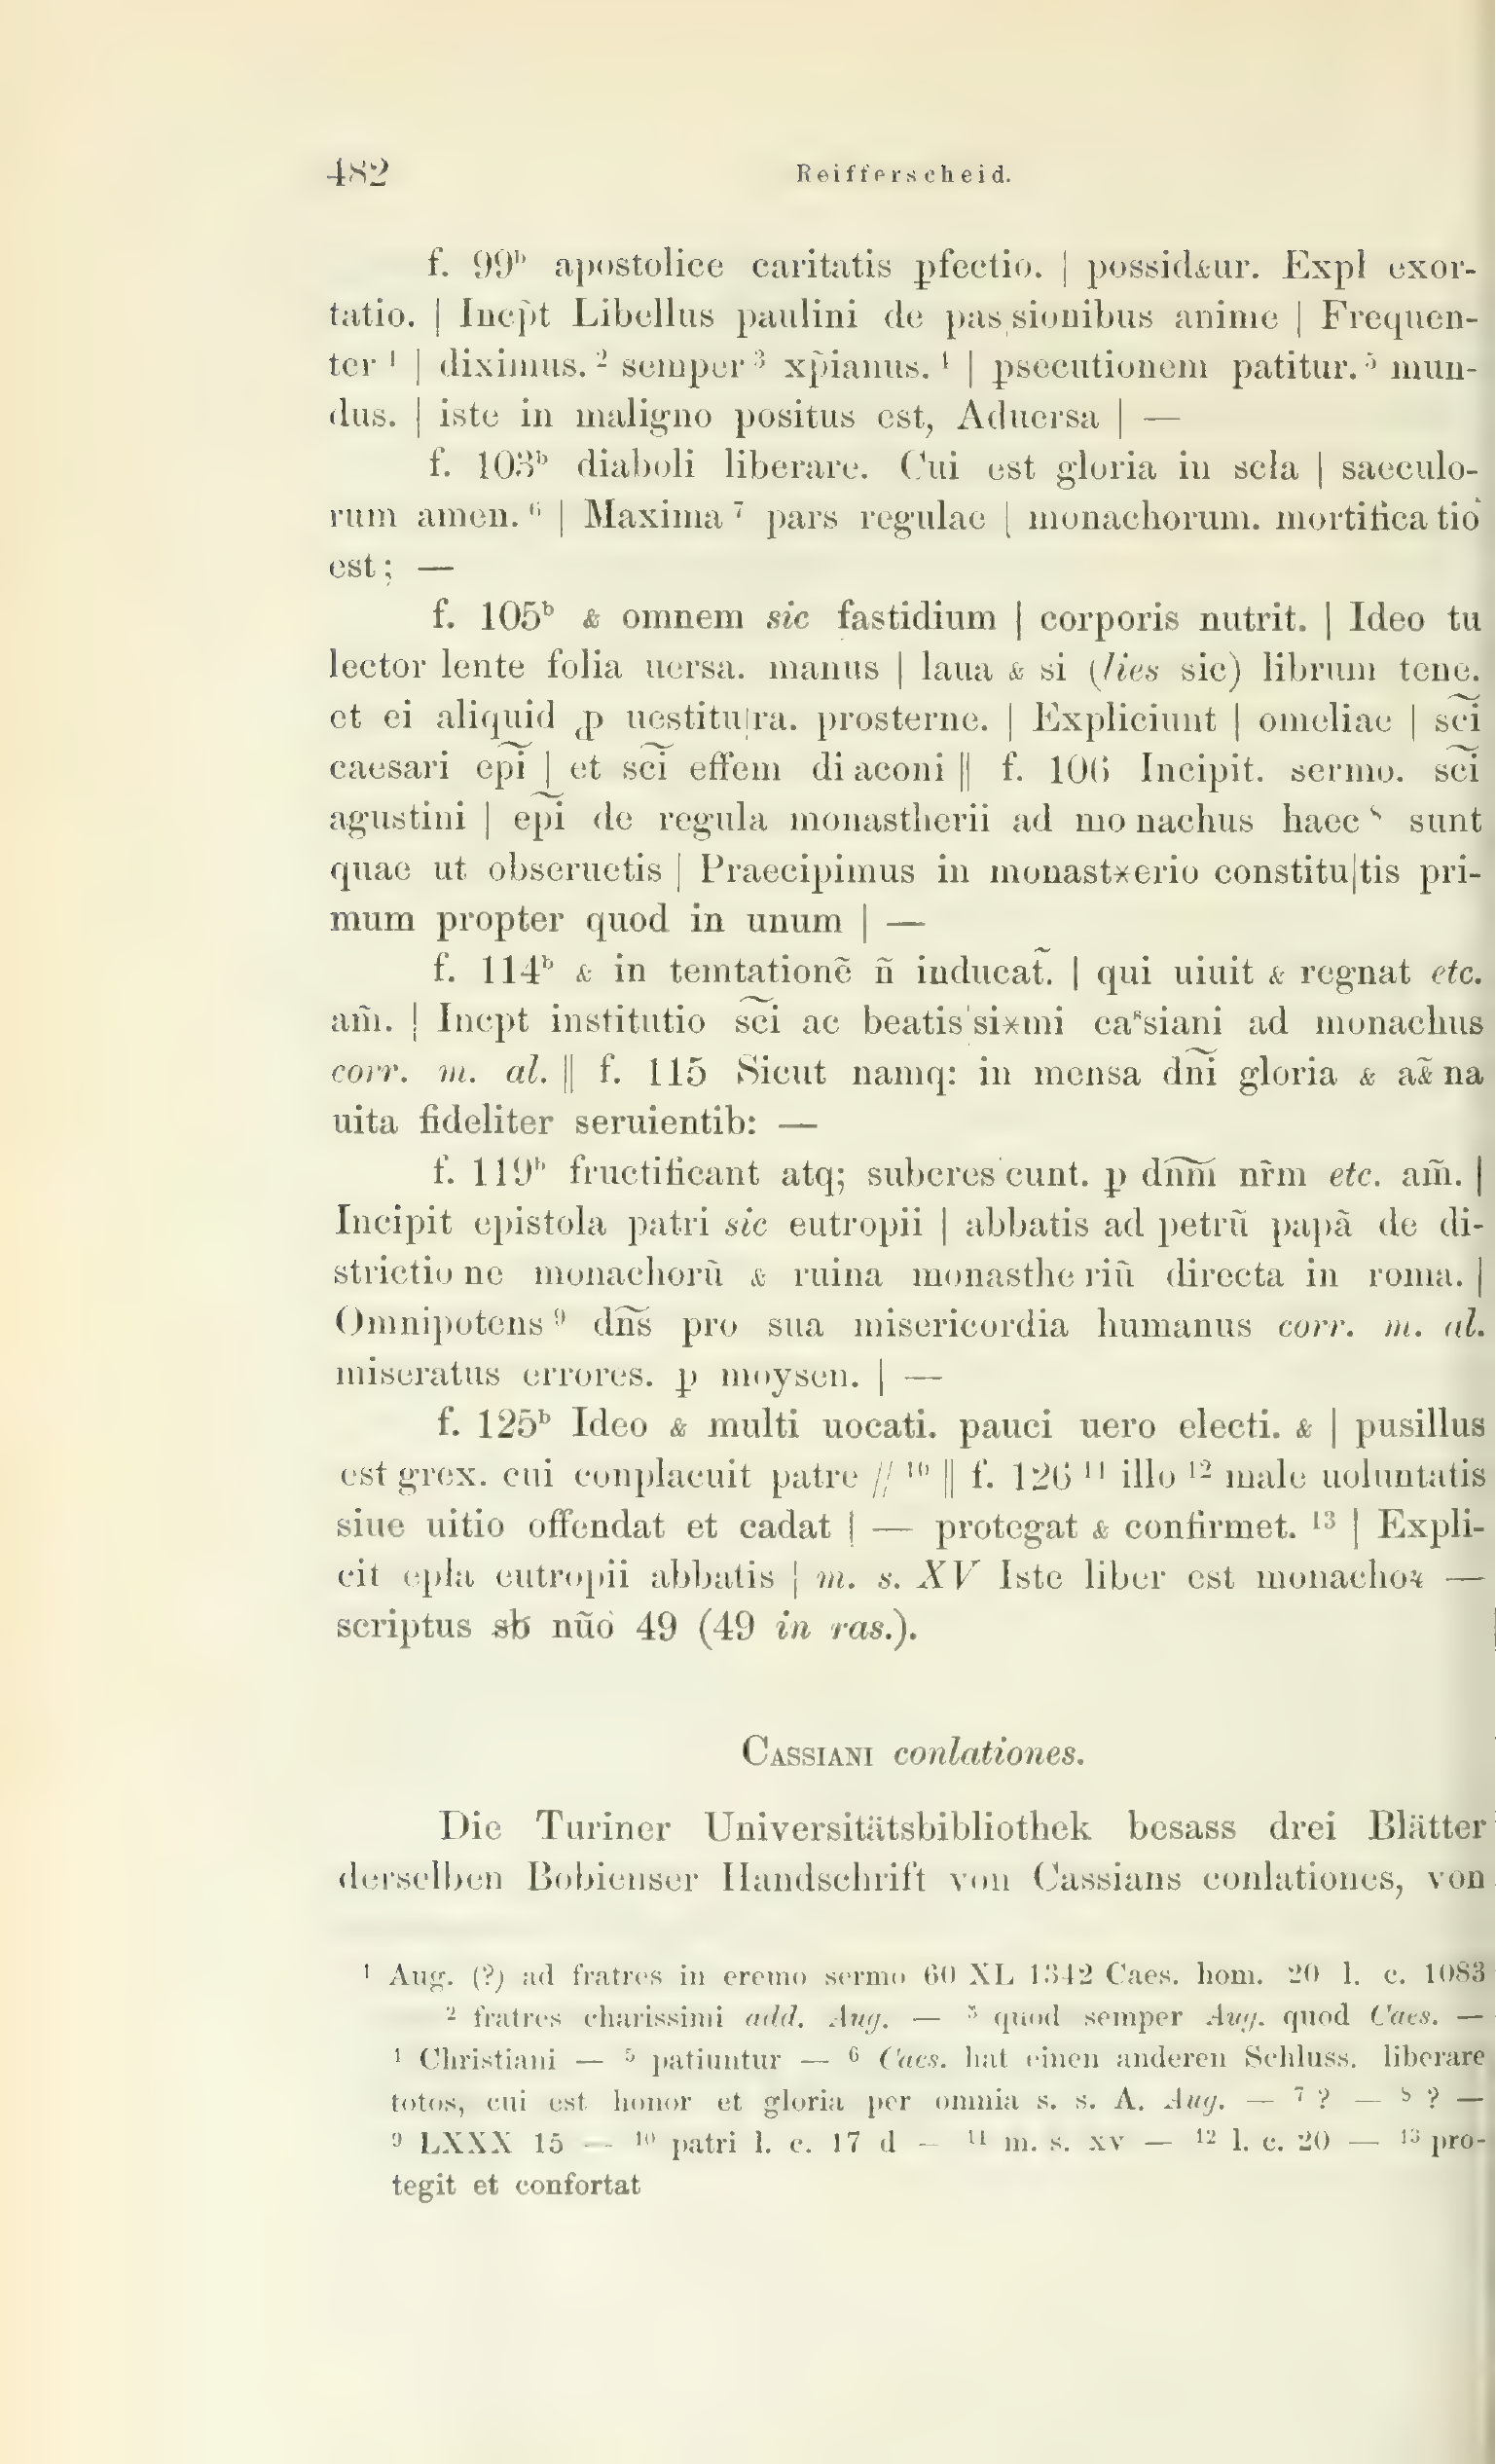 482 Reifferscheid.
f. 99ᵇ apostolice caritatis ꝑfectio. | possid&ur. Expł exor-
tatio. | Incp̃t Libellus paulini de pas|sionibus anime | Frequen-
ter ¹ | diximus. ² semper ³ xp̃ianus. ⁴ | ꝑsecutionem patitur. ⁵ mun-
dus. | iste in maligno positus est, Aduersa | —
f. 103ᵇ diaboli liberare. Cui est gloria in scła | saeculo-
rum amen. ⁶ | Maxima ⁷ pars regulae | monachorum. mortifica|tio
est; —
f. 105ᵇ & omnem sic fastidium | corporis nutrit. | Ideo tu
lector lente folia uersa. manus | laua & si (lies sic) librum tene.
et ei aliquid ꝓ uestitu|ra. prosterne. | Expliciunt | omeliae | sc͠i
caesari ep͠i | et sc͠i effem di|aconi || f. 106 Incipit. sermo. sc͠i
agustini | ep͠i de regula monastherii ad mo|nachus haec ⁸ sunt
quae ut obseruetis | Praecipimus in monast*erio constitu|tis pri-
mum propter quod in unum | —
f. 114ᵇ & in temtationẽ ñ inducat̃. | qui uiuit & regnat etc.
am̃. | Incpt institutio sc͠i ac beatis|si*mi caˢsiani ad monachus
corr. m. al. || f. 115 Sicut namq: in mensa dn͠i gloria & a&̃|na
uita fideliter seruientib: —
f. 119ᵇ fructificant atq; subcres|cunt. ꝑ dn͠m nr̃m etc. am̃. |
Incipit epistola patri sic eutropii | abbatis ad petrũ papã de di-
strictio|ne monachorũ & ruina monasthe|riũ directa in roma. |
Omnipotens ⁹ dn͠s pro sua misericordia humanus corr. m. al.
miseratus errores. ꝑ moysen. | —
f. 125ᵇ Ideo & multi uocati. pauci uero electi. & | pusillus
est grex. cui conplacuit patre // ¹⁰ || f. 126 ¹¹ illo ¹² male uoluntatis
siue uitio offendat et cadat | — protegat & confirmet. ¹³ | Expli-
cit epła eutropii abbatis | m. s. XV Iste liber est monachoꝝ —
scriptus sƀ nũo 49 (49 in ras.).
Cassiani conlationes.
Die Turiner Universitätsbibliothek besass drei Blätter
derselben Bobienser Handschrift von Cassians conlationes, von
¹ Aug. (?) ad fratres in eremo sermo 60 XL 1342 Caes. hom. 20 l. c. 1083
² fratres charissimi add. Aug. — ³ quod semper Aug. quod Caes. —
⁴ Christiani — ⁵ patiuntur — ⁶ Caes. hat einen anderen Schluss. liberare
totos, cui est honor et gloria per omnia s. s. A. Aug. — ⁷ ? — ⁸ ? —
⁹ LXXX 15 — ¹⁰ patri l. c. 17 d — ¹¹ m. s. xv — ¹² l. c. 20 — ¹³ pro-
tegit et confortat